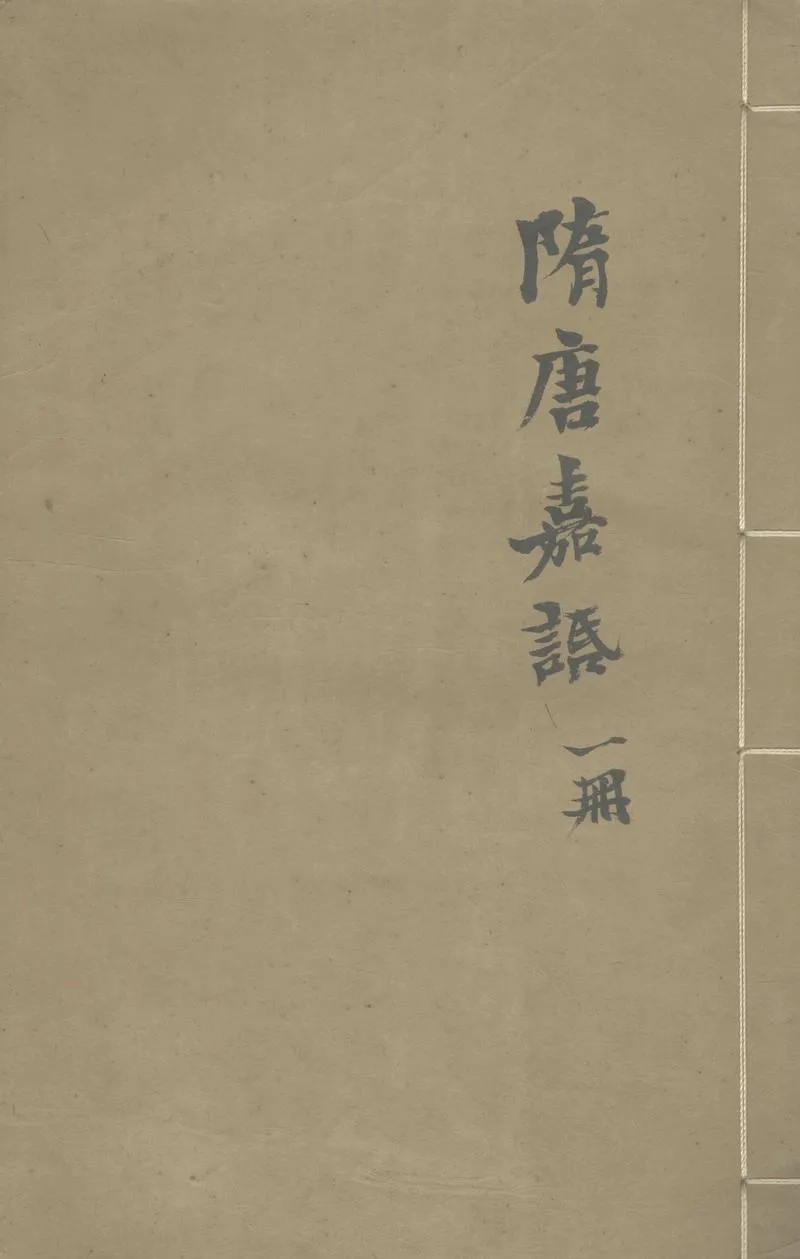 隋唐嘉䛡
一冊